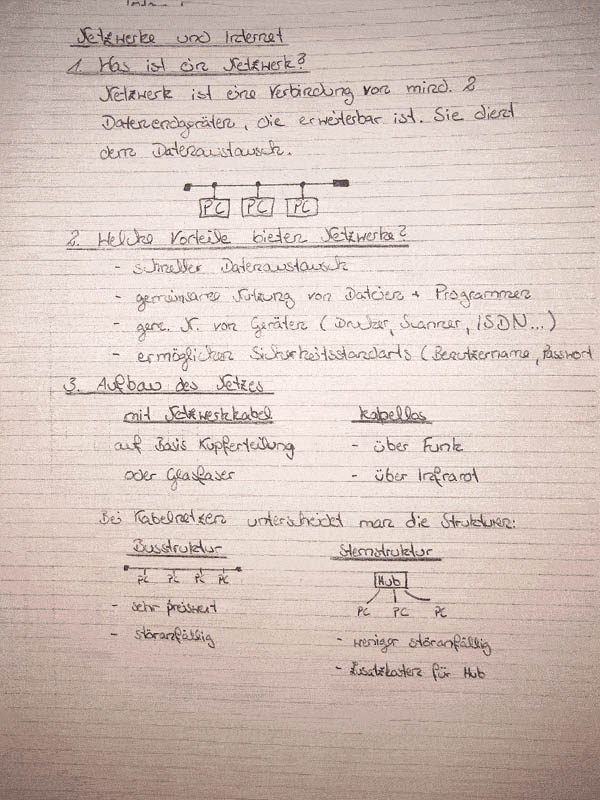 Netzwerke und Internet
1. Was ist ein Netzwerk?
Netzwerk ist eine Verbindung von mind. 2
Datenendgeräten, die erweiterbar ist. Sie dient
dem Datenaustausch.
PC PC PC
2. Welche Vorteile bieten Netzwerke?
- schneller Datenaustausch
- gemeinsame Nutzung von Dateien + Programmen
- gem. N. von Geräten (Drucker, Scanner, ISDN...)
- ermöglichen Sicherheitsstandarts (Benutzername, Passwort
3. Aufbau des Netzes
mit Netzwerkkabel
auf Basis Kupferleitung
oder Glasfaser
kabellos
- über Funk
- über Infrarot
Bei Kabelnetzen unterscheidet man die Strukturen:
Busstruktur
PC PC PC PC
- sehr preiswert
- störanfällig
Sternstruktur
Hub
PC PC PC
- weniger störanfällig
- Zusatzkosten für Hub